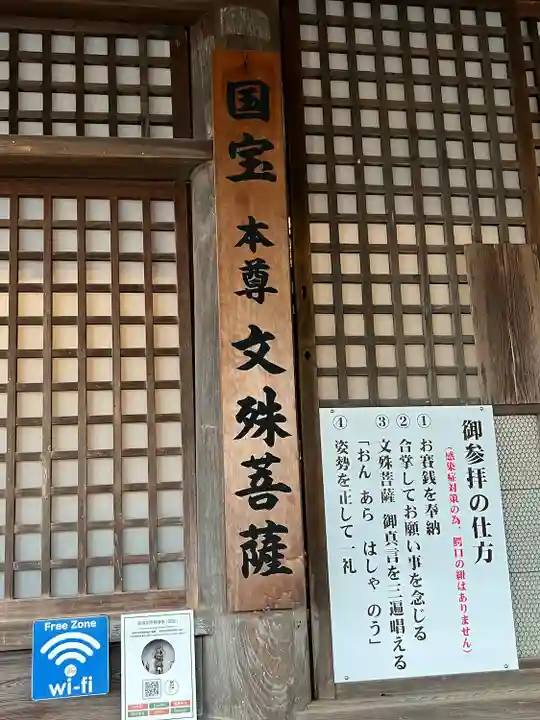 国宝 本尊 文殊菩薩
御参拝の仕方
(感染症対策の為、鰐口の紐はありません)
① お賽銭を奉納
② 合掌してお願い事を念じる
③ 文殊菩薩 御真言を三遍唱える
「おん あら はしゃ のう」
④ 姿勢を正して一礼
Free Zone
wi-fi